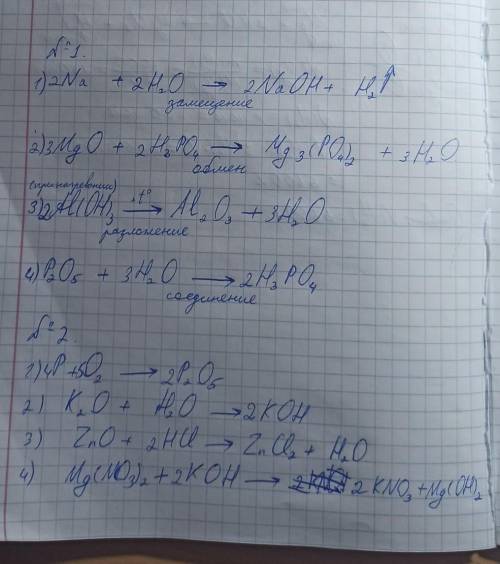 №1.
1) 2Na + 2H₂O → 2NaOH + H₂↑
замещение
2) 3MgO + 2H₃PO₄ → Mg₃(PO₄)₂ + 3H₂O
обмен
(при нагревании)
3) 2Al(OH)₃ t° → Al₂O₃ + 3H₂O
разложение
4) P₂O₅ + 3H₂O → 2H₃PO₄
соединение
№2.
1) 4P + 5O₂ → 2P₂O₅
2) K₂O + H₂O → 2KOH
3) ZnO + 2HCl → ZnCl₂ + H₂O
4) Mg(NO₃)₂ + 2KOH → 2KNO₃ + Mg(OH)₂